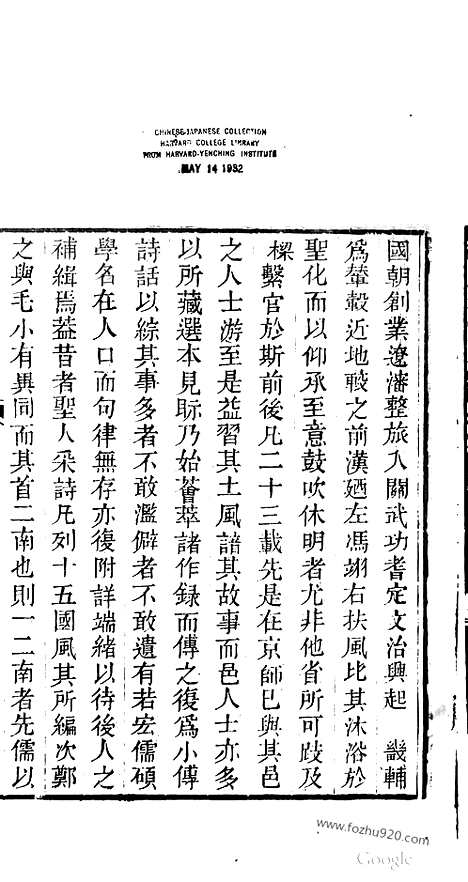 CHINESE-JAPANESE COLLECTION
HARVARD COLLEGE LIBRARY
FROM HARVARD-YENCHING INSTITUTE
MAY 14 1932
國朝創業遼瀋整旅入關武功耆定文治興起　畿輔
爲輦轂近地較之前漢廼左馮翊右扶風比其沐浴於
聖化而以仰承至意鼓吹休明者尤非他省所可跂及
樑繫官於斯前後凡二十三載先是在京師巳與其邑
之人士游至是益習其土風諳其故事而邑人士亦多
以所藏選本見眎乃始薈萃諸作録而傳之復爲小傳
詩話以綜其事多者不敢濫僻者不敢遺有若宏儒碩
學名在人口而句律無存亦復附詳端緒以待後人之
補緝焉葢昔者聖人釆詩凡列十五國風其所編次鄭
之與毛小有異同而其首二南也則一二南者先儒以
www.fozhu920.com
Google